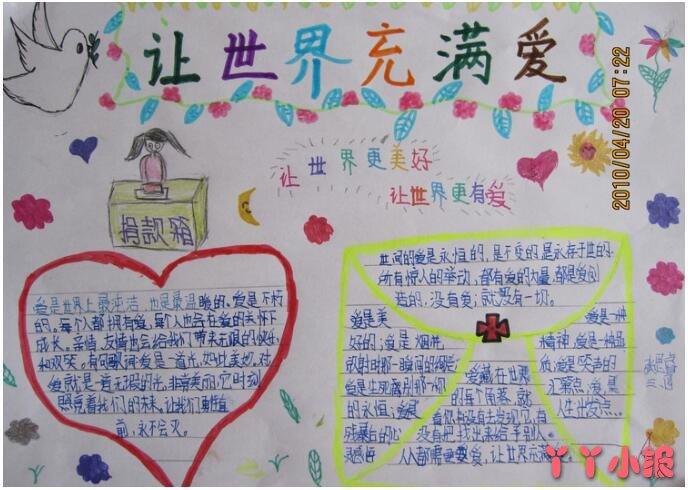 让世界充满爱
2010/04/20 07:22
让世界更美好
让世界更有爱
捐款箱
爱是世界上最纯洁,也是最温暖的。爱是不朽
的。每个人都拥有爱,每个人也会在爱的关怀下
成长。亲情、友情也会给我们带来无限的快乐
和欢笑。有句歌词:爱是一道光,如此美妙。对
爱就是一道无瑕的光,非常美丽,它时刻
照亮着我们的未来。让我们勇往直
前,永不会灭。
世间的爱是永恒的,是不变的,是永存于世的。
所有惊人的举动,都有爱的力量,都是爱创
造的,没有爱,就没有一切。
爱是美
好的;爱是烟花
放射时那一瞬间的
爱是生死离别那一刻
的永恒;爱是
残暴后的心
灵感悔
爱是一种
精神,爱是一种品
质;爱是笑声的
汇聚点,爱是
人生出发点。
爱藏在世界
的每个角落,就
看你有没有去发现它,有
没有把它找出来给予别人。
人人都需要爱,让世界充满爱。
丫丫小报